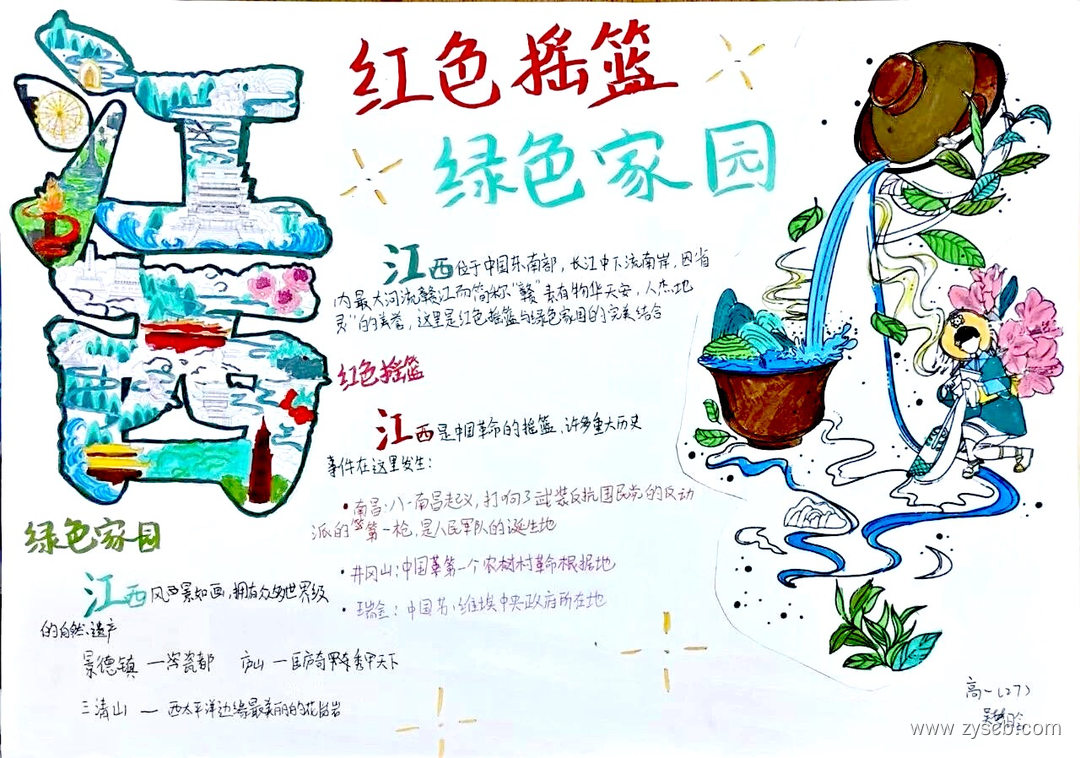 江西
红色摇篮
绿色家园
江西位于中国东南部，长江中下流南岸，因省
内最大河流赣江而简称"赣"素有物华天宝，人杰地
灵"的美誉，这里是红色摇篮与绿色家园的完美结合
红色摇篮
江西是中国革命的摇篮，许多重大历史
事件在这里发生：
·南昌：八一南昌起义，打响了武装反抗国民党的反动
派的第一枪，是人民军队的诞生地
·井冈山：中国革第一个农村革命根据地
·瑞金：中国苏维埃中央政府所在地
绿色家园
江西风景如画，拥有众多世界级
的自然遗产
景德镇一瓷都 庐山一匡庐奇秀甲天下
三清山 — 西太平洋边缘最美丽的花岗岩
高一(27)
www.zyscb.com